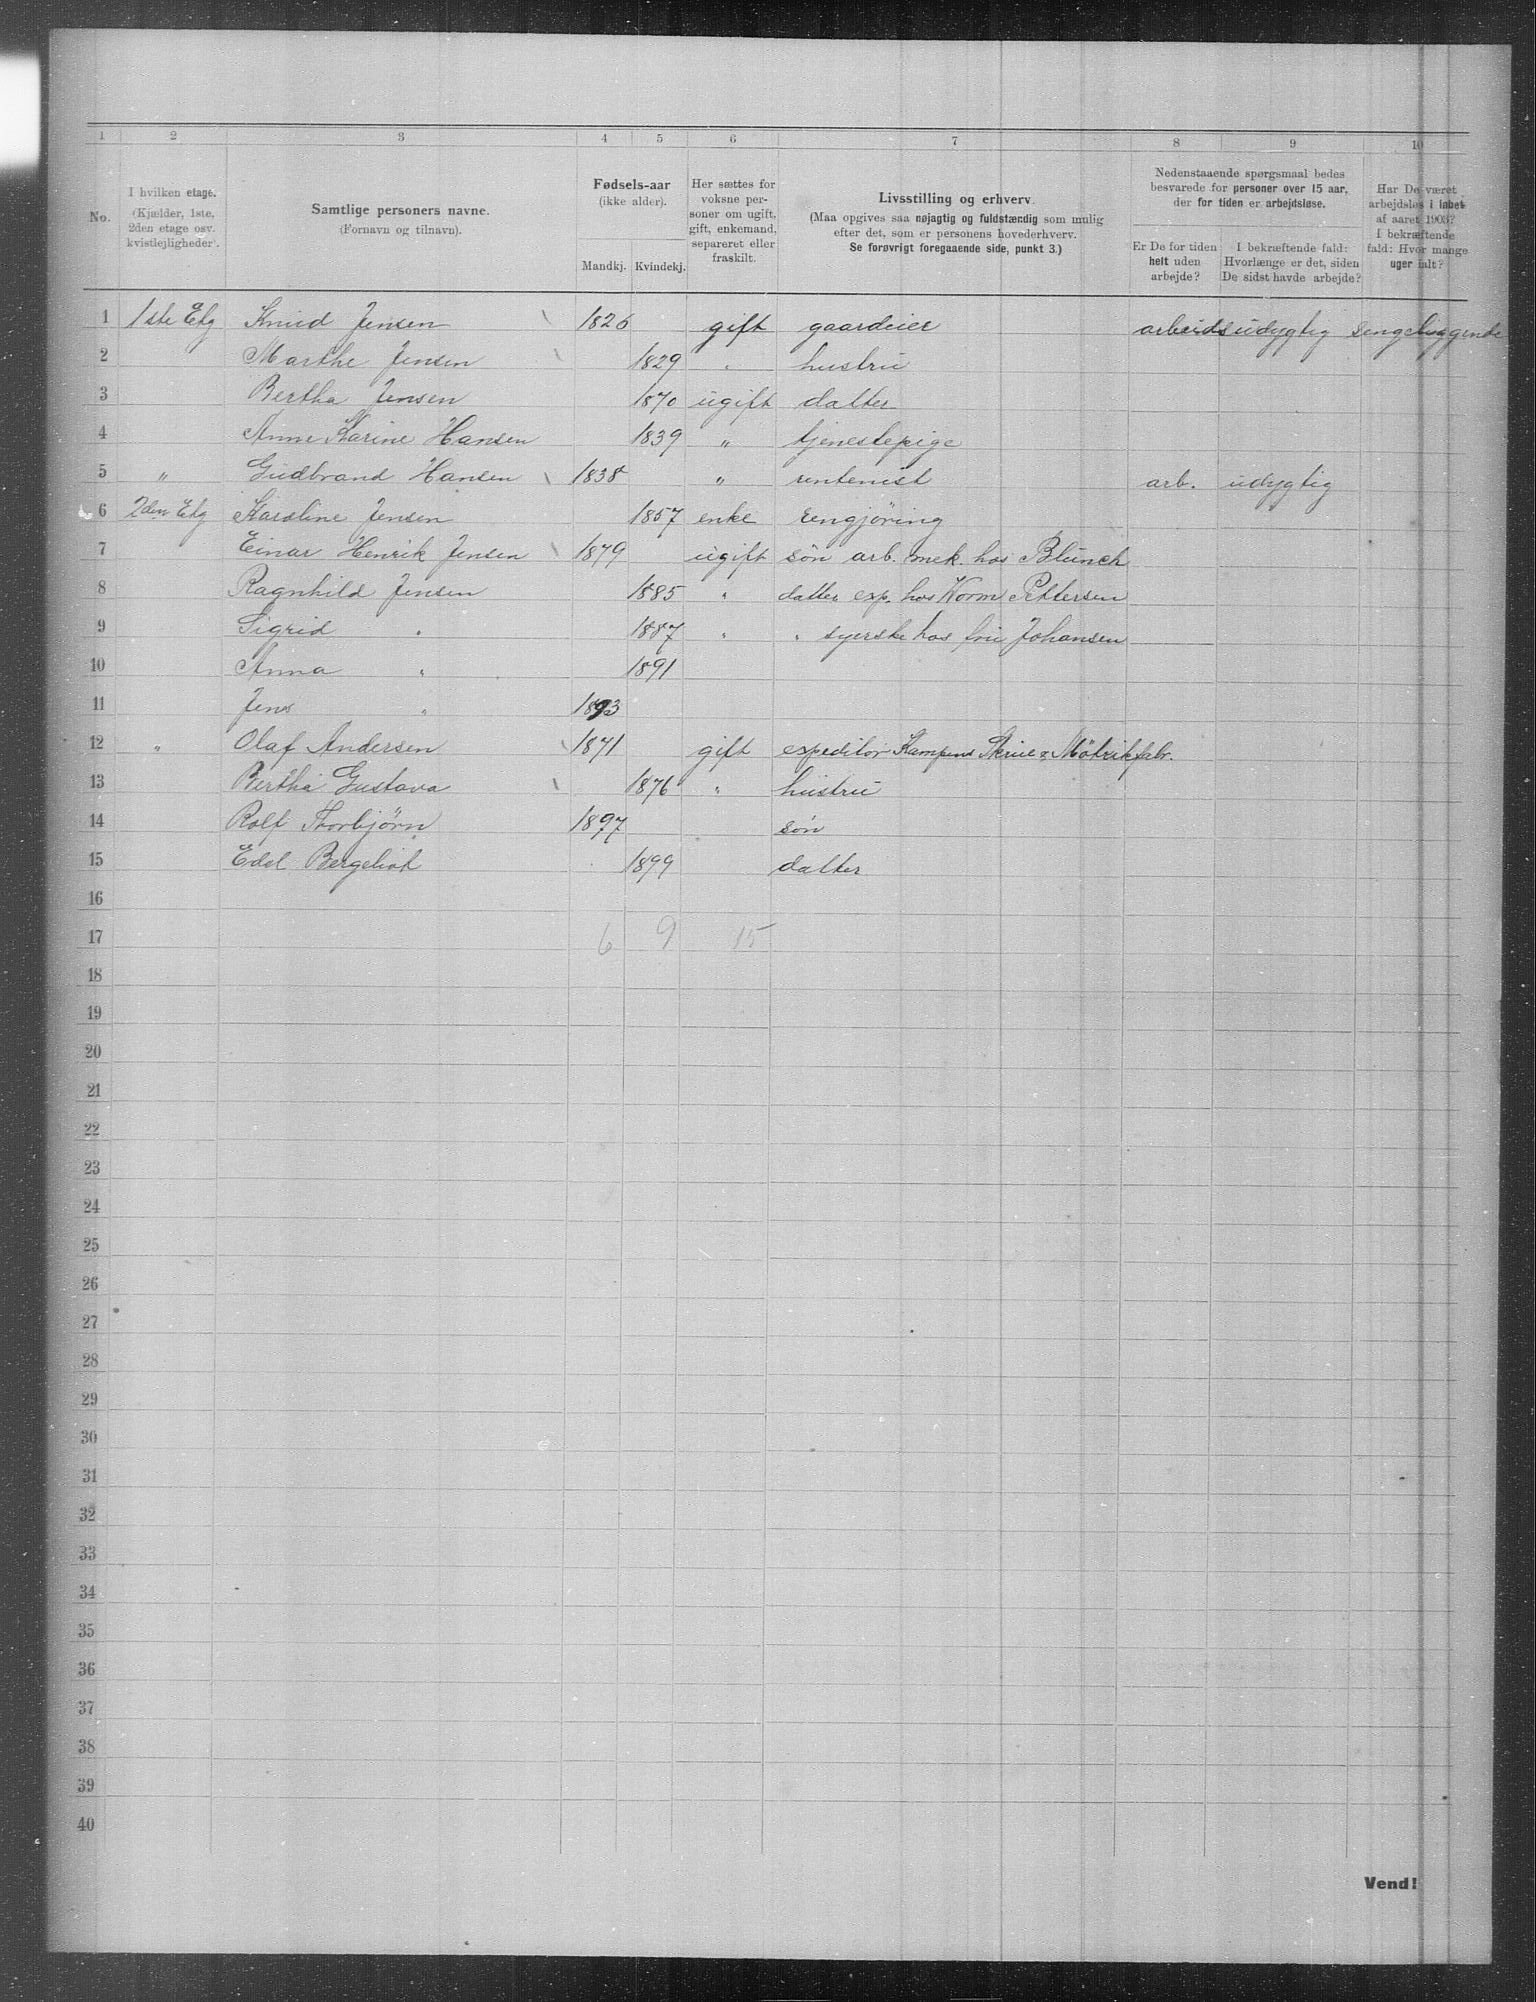 1 2 3 4 5 6 7 8 9 10
No.
I hvilken etage.
(Kjælder, 1ste,
2den etage osv.
kvistlejligheder).
Samtlige personers navne.
(Fornavn og tilnavn).
Fødsels-aar
(ikke alder).
Mandkj. Kvindekj.
Her sættes for
voksne per-
soner om ugift,
gift, enkemand,
separeret eller
fraskilt.
Livsstilling og erhverv.
(Maa opgives saa nøjagtig og fuldstændig som mulig
efter det, som er personens hovederhverv.
Se forøvrigt foregaaende side, punkt 3.)
Nedenstaaende spørgsmaal bedes
besvarede for personer over 15 aar,
der for tiden er arbejdsløse.
Er De for tiden
helt uden
arbejde?
I bekræftende fald:
Hvorlænge er det, siden
De sidst havde arbejde?
Har De været
arbejdsløs i løbet
af aaret 1903?
I bekræftende
fald: Hvor mange
uger ialt?
1 1ste Etg Knud Jensen 1826 gift gaardeier arbeidsudygtig sengeliggende
2 Marthe Jensen 1829 " hustru
3 Bertha Jensen 1870 ugift datter
4 Anne Karine Hansen 1839 " tjenestepige
5 " Gudbrand Hansen 1838 " rentenist arb. udygtig
6 2den Etg Karoline Jensen 1857 enke rengjøring
7 Einar Henrik Jensen 1879 ugift søn arb. mek. hos Blunck
8 Ragnhild Jensen 1885 " datter exp. hos Worm Pettersen
9 Sigrid " 1887 " " syerske hos fru Johansen
10 Anna " 1891
11 Jens " 1893
12 " Olaf Andersen 1871 gift expeditør Kampens Skrue & Møtrikfabr.
13 Bertha Gustava 1876 " hustru
14 Rolf Thorbjørn 1897 søn
15 Edel Bergeliot 1899 datter
16
17 6 9 15
18
19
20
21
22
23
24
25
26
27
28
29
30
31
32
33
34
35
36
37
38
39
40
Vend!